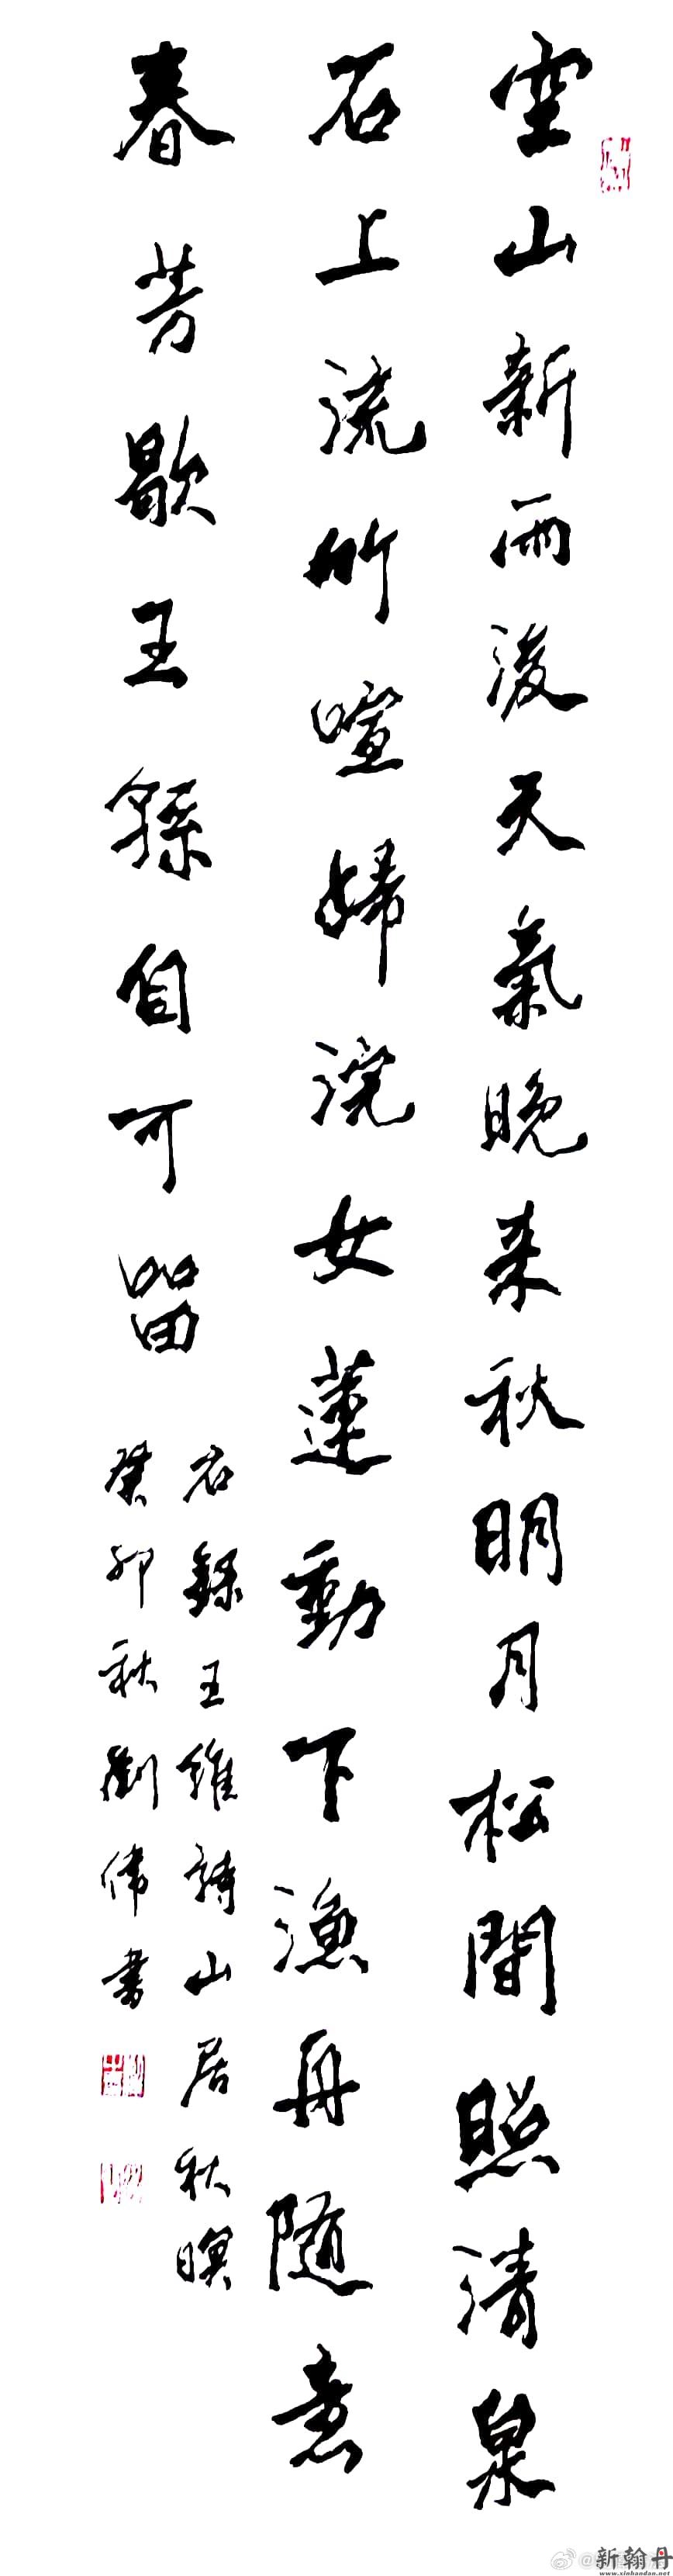 空山新雨後天氣晚来秋明月松間照清泉
石上流竹喧歸浣女蓮動下漁舟隨意
春芳歇王孫自可留
右録王維詩山居秋暝
癸卯秋劉偉書
新翰丹
www.xinhandan.net